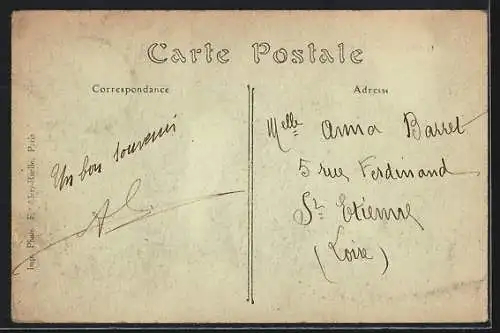 Carte Postale
Correspondance
Adresse
Un bon souvenir
Melle Anna Barret
5 rue Ferdinand
St Etienne
(Loire)
Paris